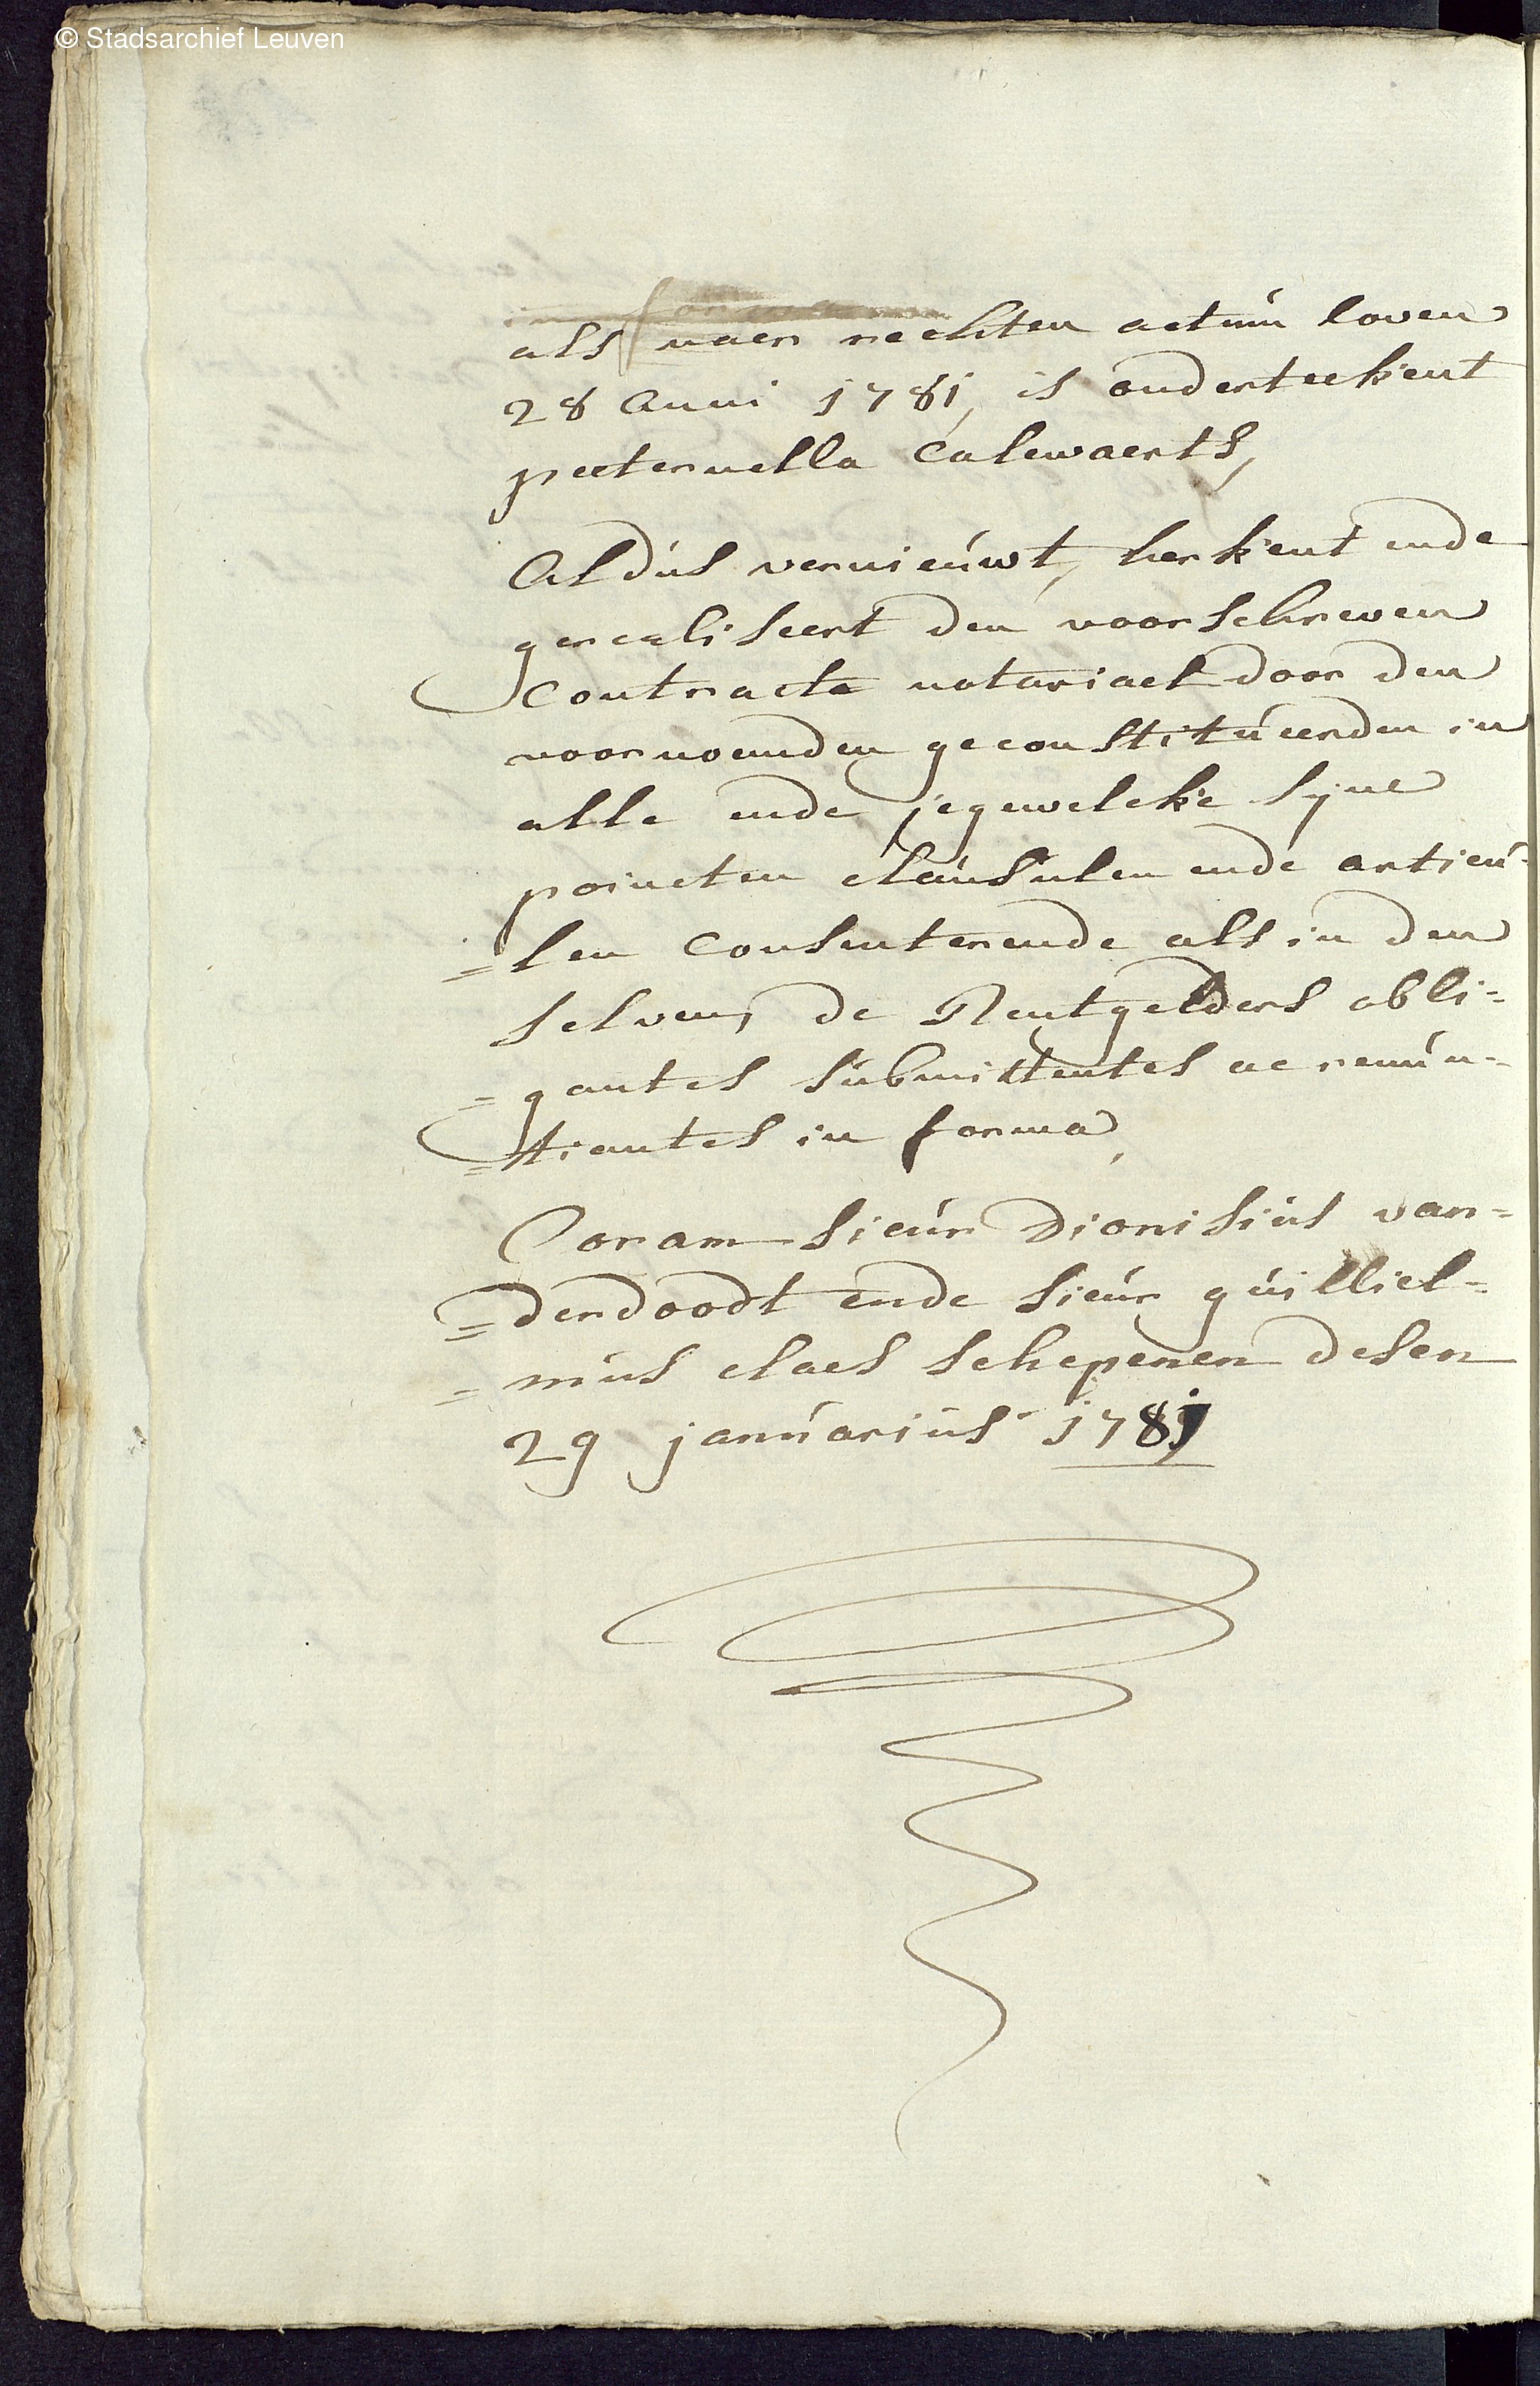 © Stadsarchief Leuven
in forma
als naer rechten actum loven
28 Anni 1781, is onderteekent
peeternella Calewaerts,
Aldus vernieuwt, herkent ende
gerealiseert den voorschreven
Contracte notariael door den
voornoemden geconstitueerden in
alle ende jegewelcke syne
poincten clausulen ende articu-
=len Consenterende als in den
selven, de Rentgelders obli=
=gantes submittentes ac renun=
=tiantes in forma,
Coram sieur Dionisius van=
=derdoodt ende sieur guilliel=
=mus claes schepenen desen
29 januarius 1781